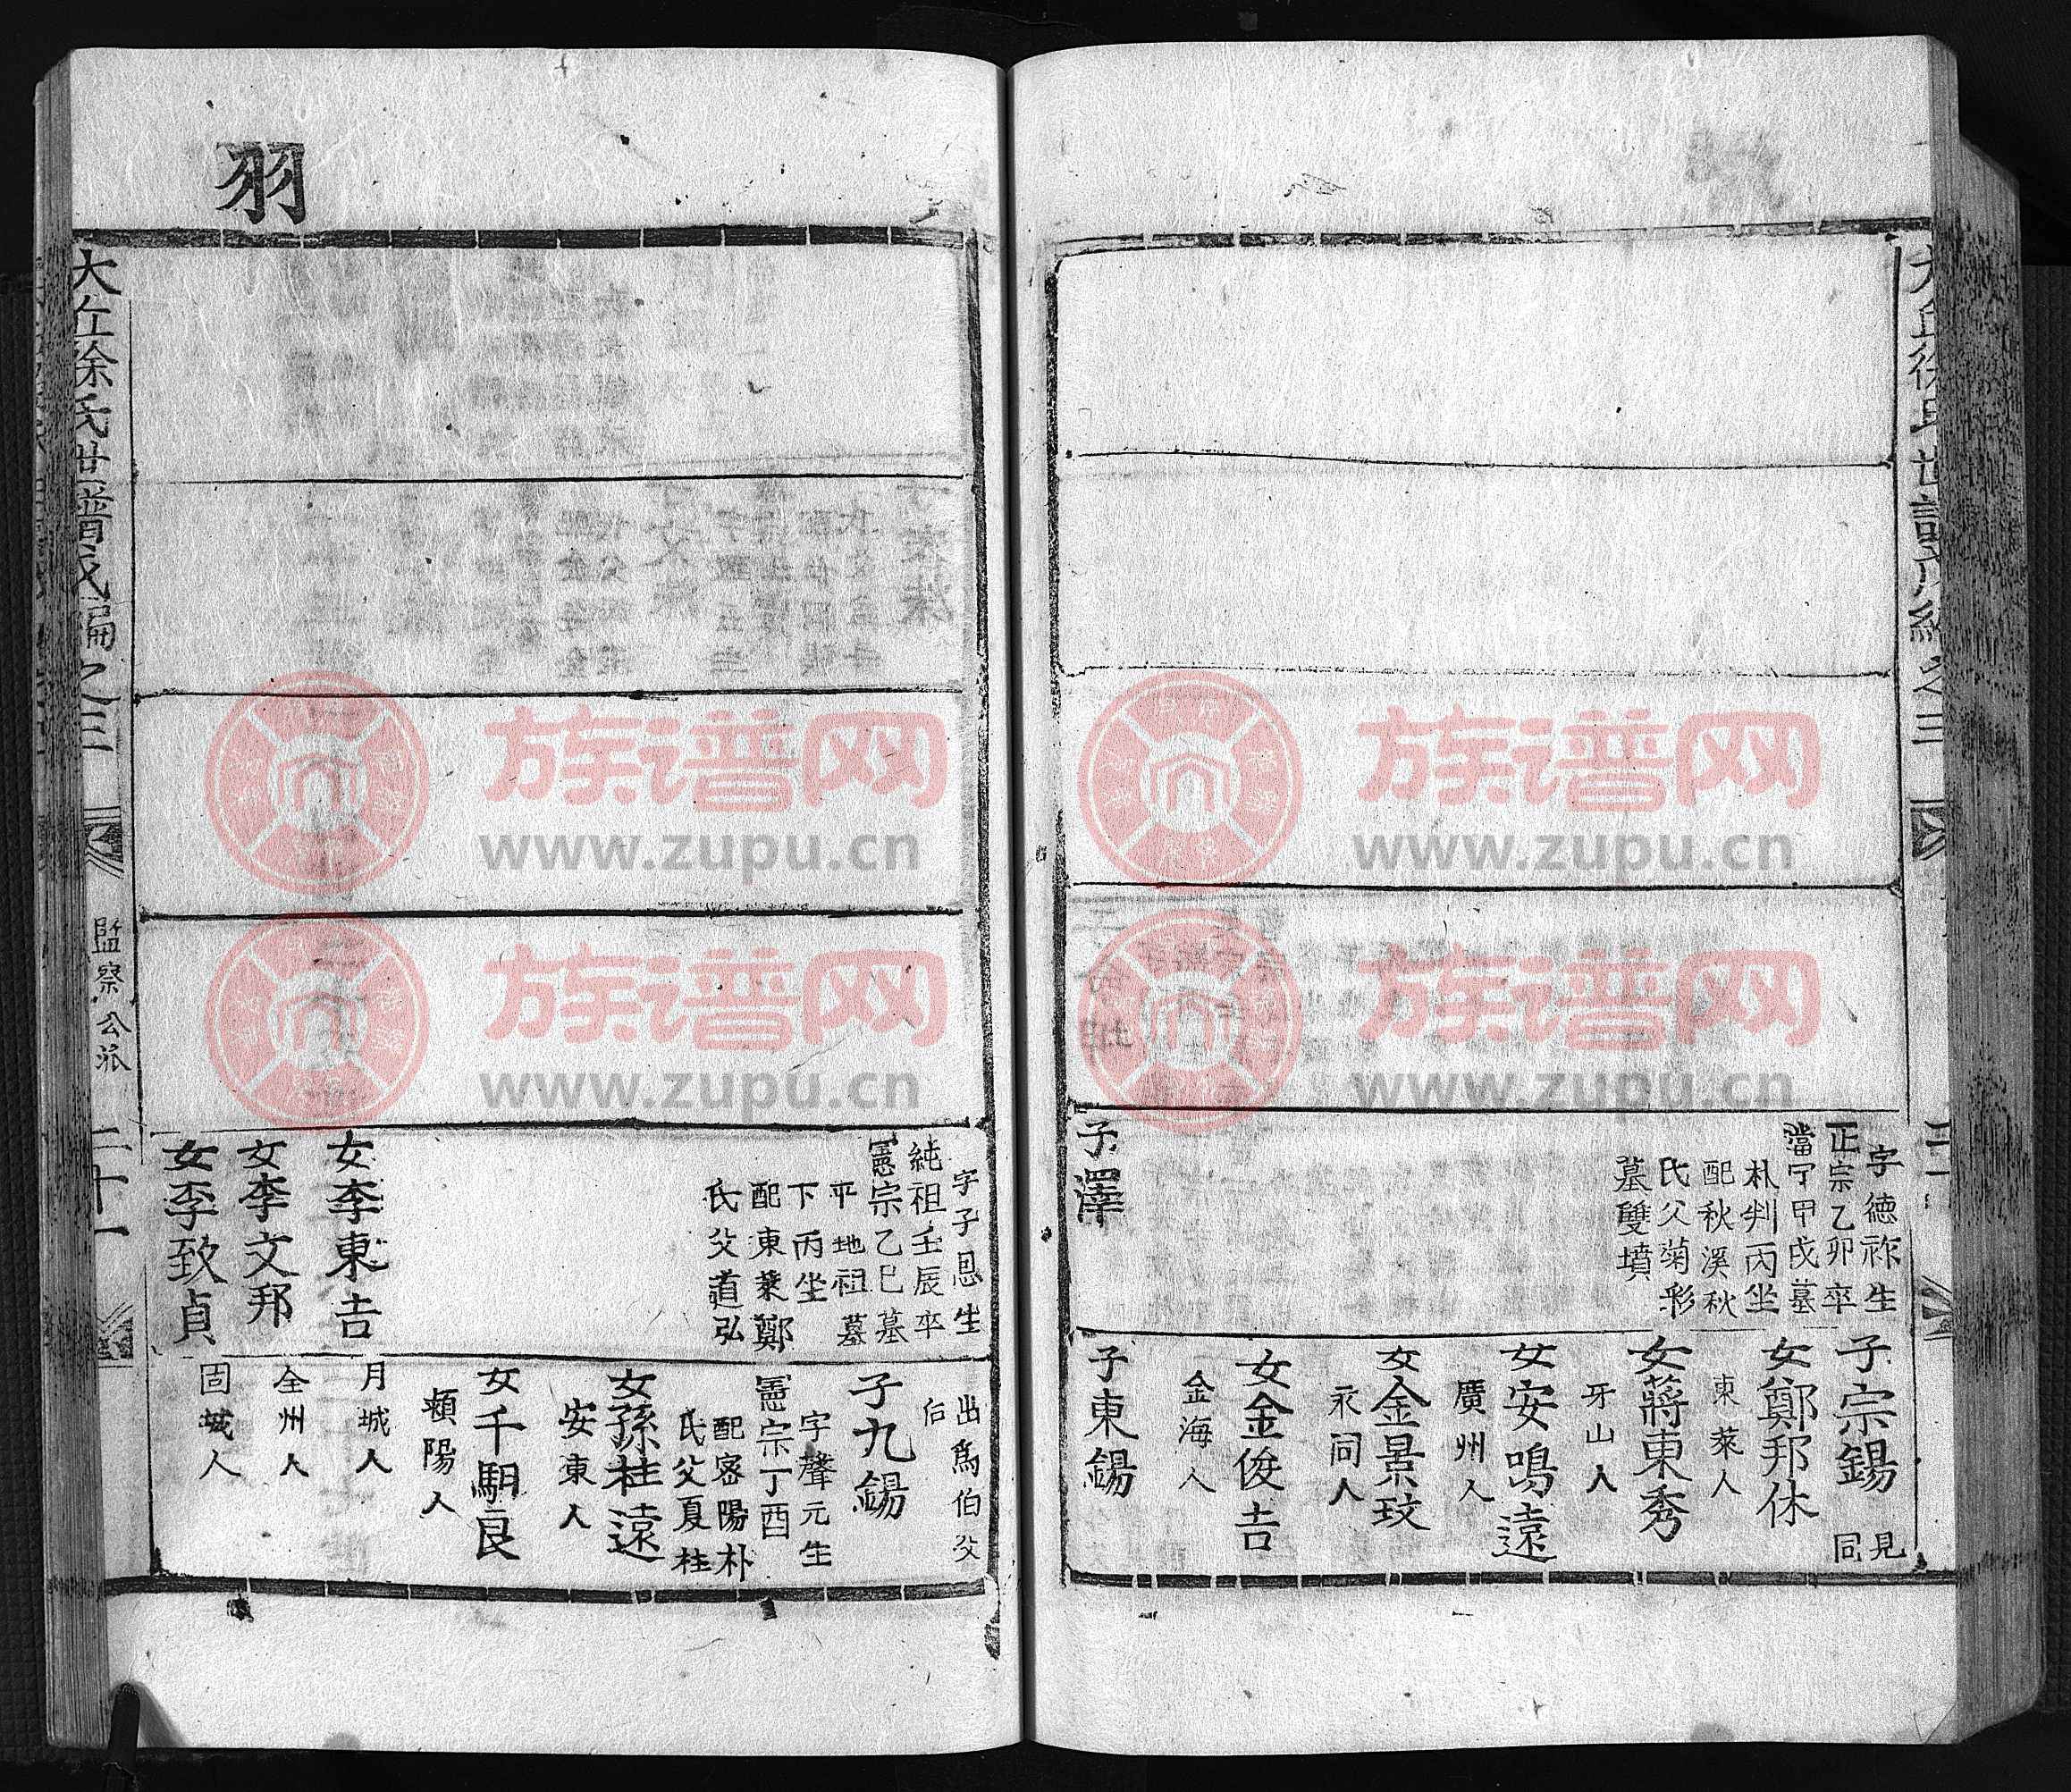 大丘徐氏世譜戌編之三
字德祚生
正宗乙卯卒
憲宗甲戌墓
朴判丙坐
配秋溪秋
氏父菊彩
墓雙墳
子澤
子宗錫
見
同
女鄭邦休
東萊人
女蔣東秀
牙山人
女安鳴遠
廣州人
女金景玟
永同人
女金俊吉
金海人
子東錫
字子恩生
純祖壬辰卒
憲宗乙巳墓
平地祖墓
下丙坐
配東萊鄭
氏父道弘
女李東吉
女李文邦
女李致貞
出爲伯父
后
子九錫
字聲元生
憲宗丁酉
配密陽朴
氏父夏柱
女孫桂遠
安東人
女千駉良
潁陽人
月城人
全州人
固城人
羽
大丘徐氏世譜戌編之三
監察公派
二十一
族谱网
www.zupu.cn
族谱网
www.zupu.cn
族谱网
www.zupu.cn
族谱网
www.zupu.cn